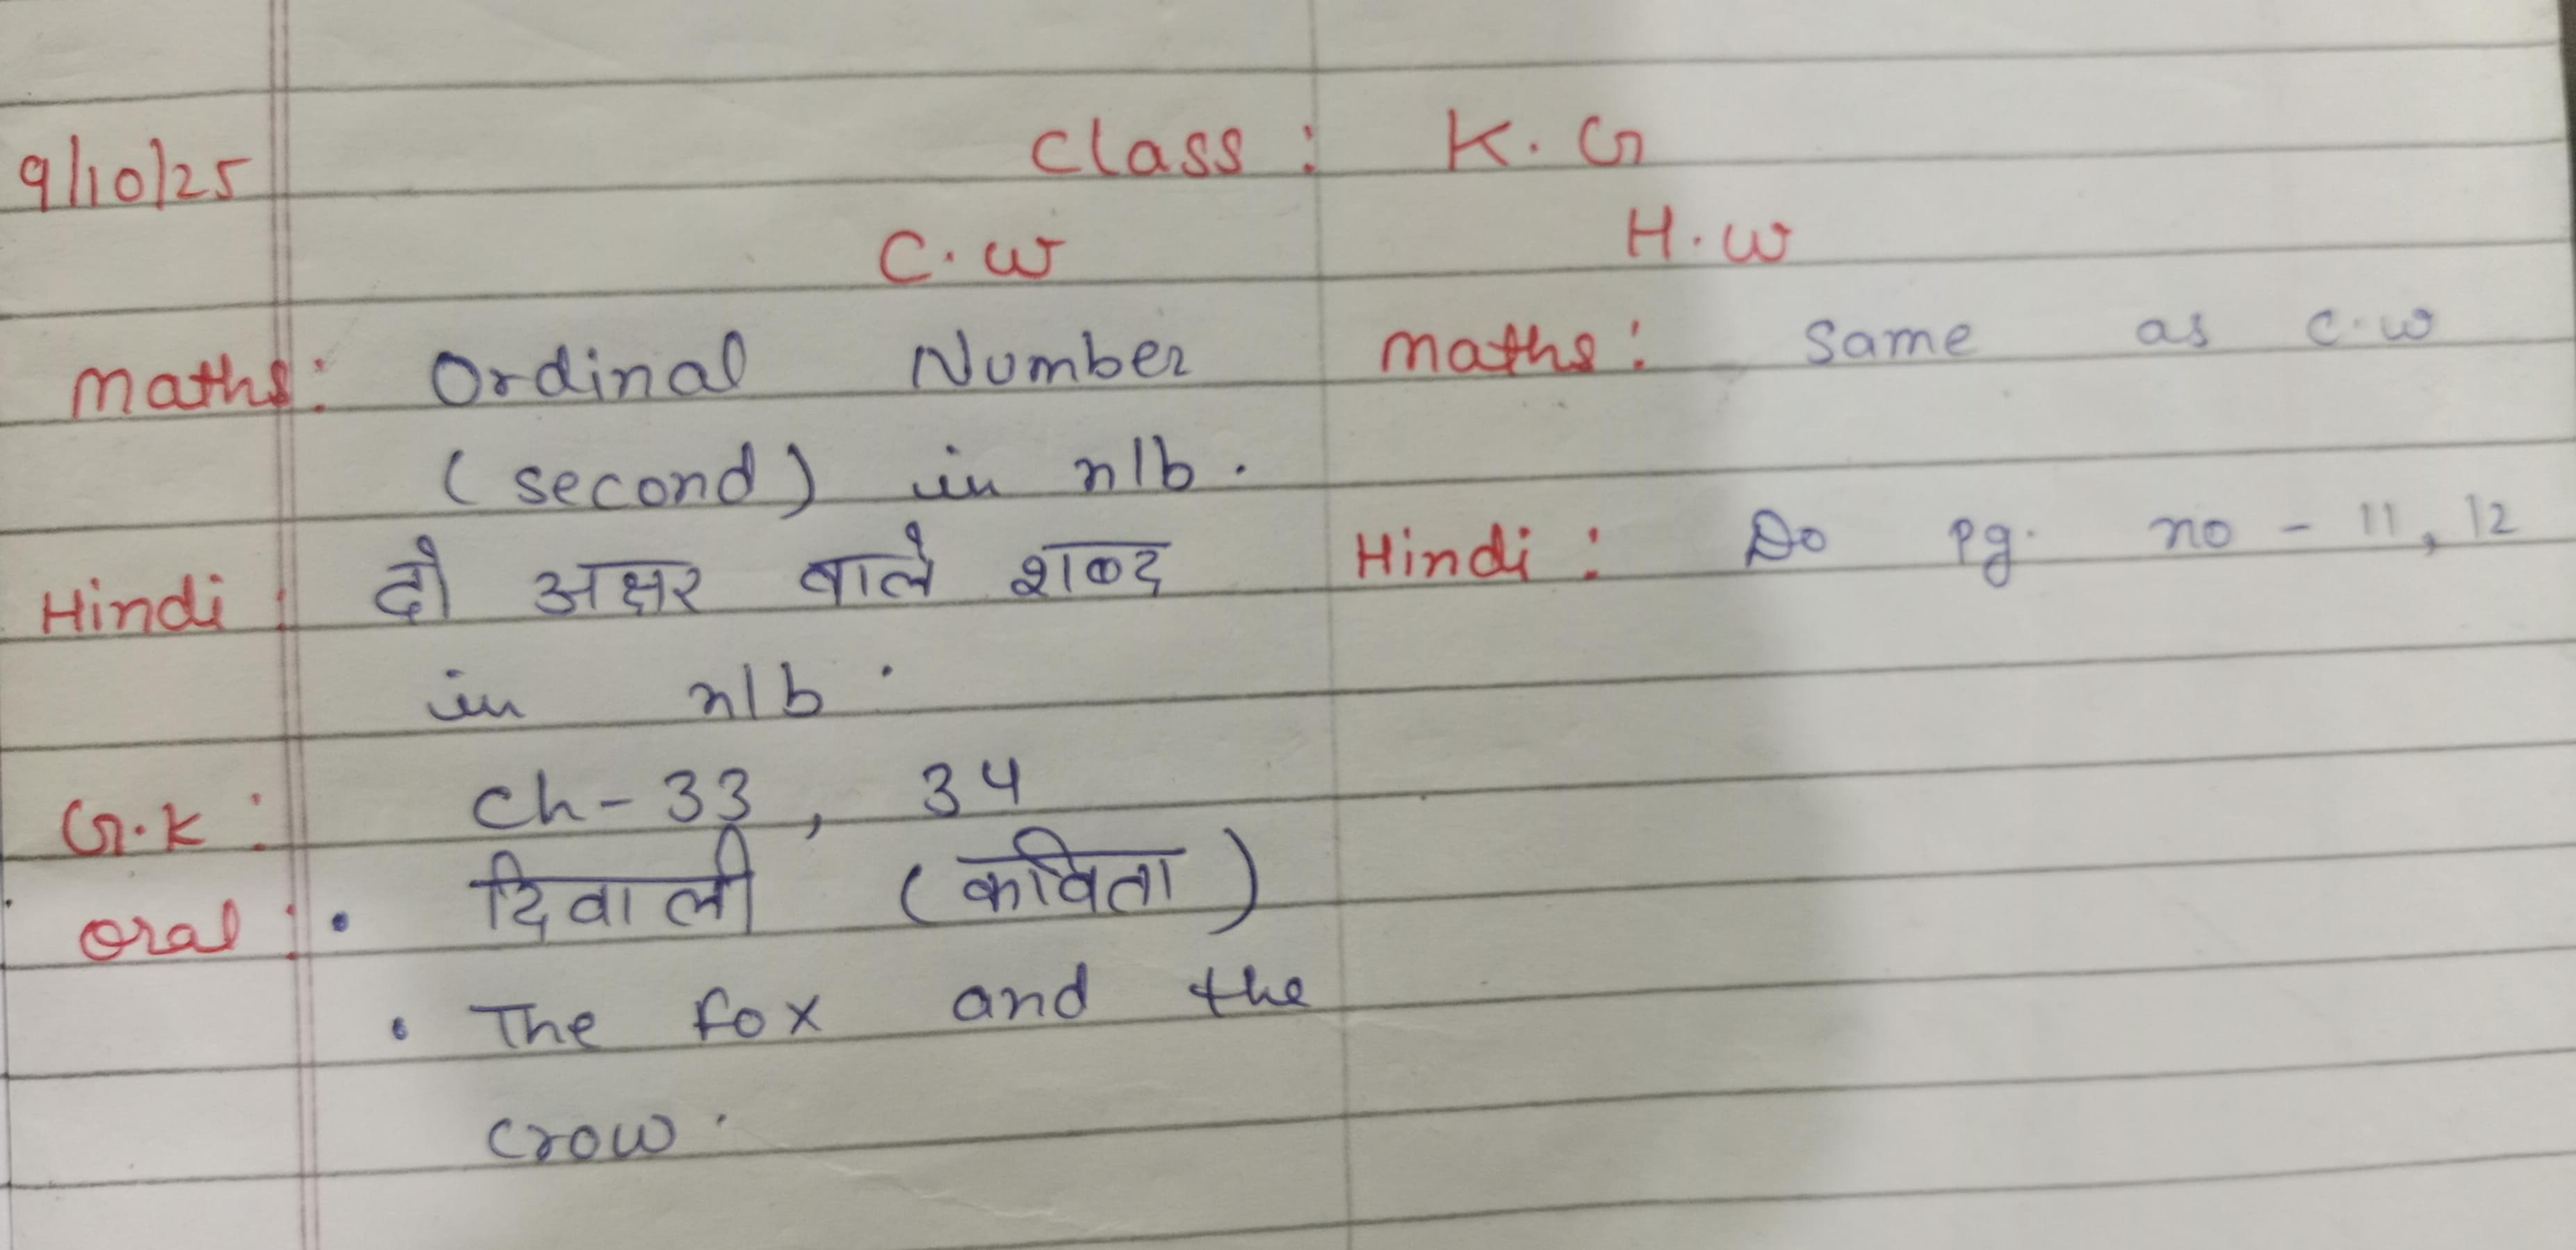 9/10/25 Class : K.G
C.w H.w
Maths: Ordinal Number Maths: Same as c.w
(second) in n/b.
Hindi : दो अक्षर वाले शब्द Hindi : Do pg. no - 11, 12
in n/b.
G.K : Ch - 33, 34
Oral : • दिवाली (कविता)
• The fox and the
crow.